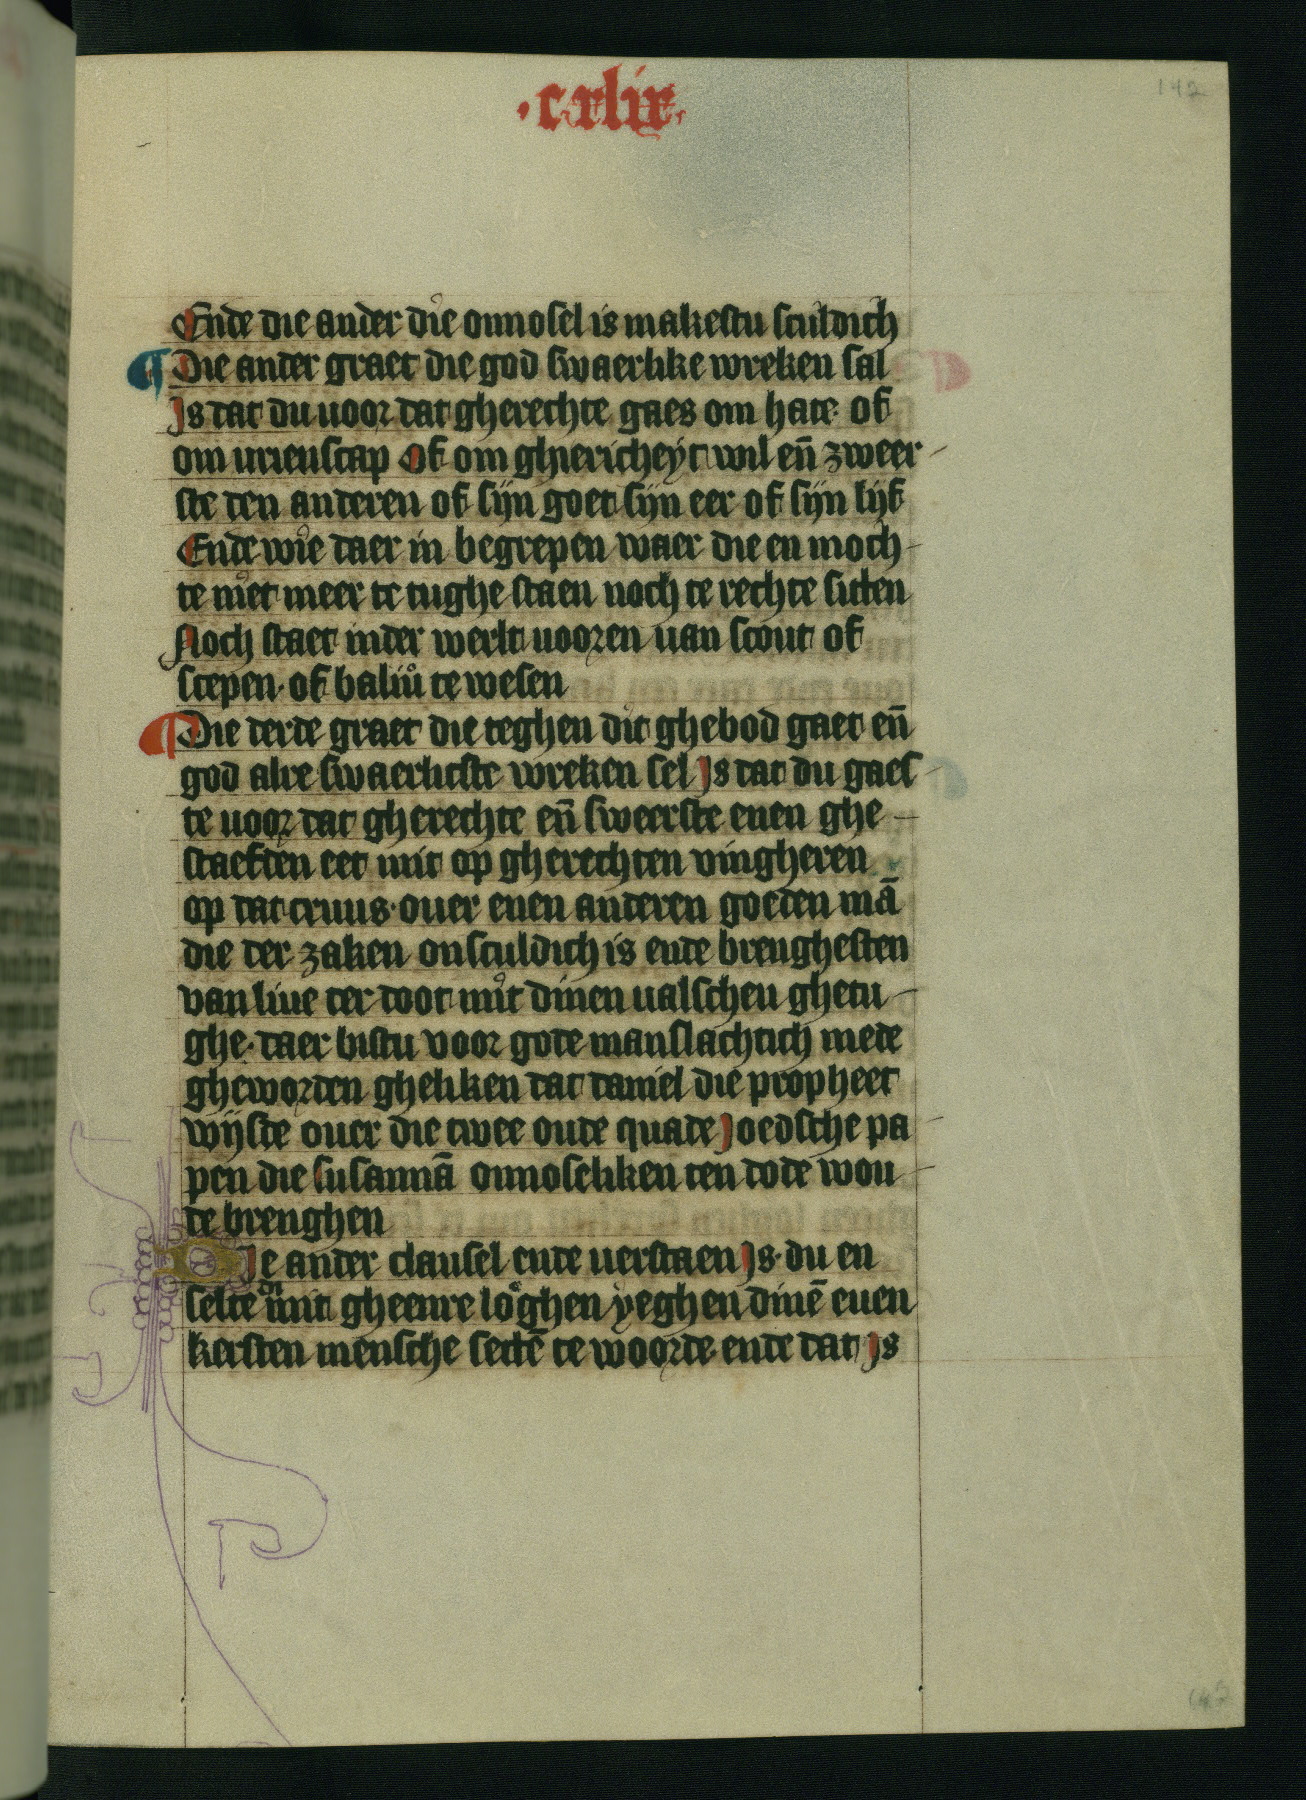 ·cxlix·
142
Ende die ander die onnosel is makestu sculdich
¶ Die ander graet die god swaerlike wreken sal
Is dat du uoor dat gherechte gaes om hate of
om urienscap Of om ghiericheyt wil en̄ zweer
ste den anderen of sijn goet sijn eer of sijn lijf
Ende wie daer in begrepen waer die en moch
te niet meer te tughe staen noch te rechte sitten
Noch staet inder werlt uooren uan scout of
scepen of baliuͦ te wesen
¶ Die derde graet die teghen dit ghebod gaet en̄
god alre swaerlicste wreken sel Is dat du gaes
te uoor dat gherechte en̄ sweerste enen ghe
staefden eet mit op gherechten vingheren
op dat cruus ouer enen anderen goeden mā
die der zaken onsculdich is ende brenghesten
van liue ter doot mit dinen ualschen ghetu
ghe· daer bistu voor gode manslachtich mede
gheworden gheliken dat daniel die propheet
wijsde ouer die twee oude quade Joedsche pa
pen die susannā onnoseliken ten dode wou
de brenghen
Die ander clausel ende uerstaen Is· du en
selte di mit gheenre loͤghen yeghen dinē euen
kersten mensche settē te woorde ende dat Is